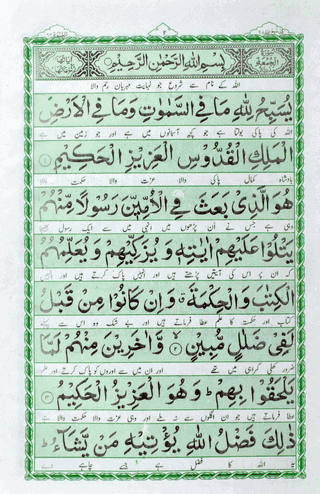 بِسْمِ اللّٰهِ الرَّحْمٰنِ الرَّحِيْمِ
اللہ کے نام سے شروع جو نہایت مہربان رحم والا
يُسَبِّحُ لِلّٰهِ مَا فِي السَّمٰوٰتِ وَمَا فِي الْاَرْضِ
اللہ کی پاکی بولتا ہے جو کچھ آسمانوں میں ہے اور جو زمین میں ہے
الْمَلِكِ الْقُدُّوْسِ الْعَزِيْزِ الْحَكِيْمِ ۱
بادشاہ کمال پاکی والا عزت والا حکمت والا
هُوَ الَّذِيْ بَعَثَ فِي الْاُمِّيّٖنَ رَسُوْلًا مِّنْهُمْ
وہی ہے جس نے ان پڑھوں میں انہی میں سے ایک رسول بھیجا
يَتْلُوْا عَلَيْهِمْ اٰيٰتِهٖ وَيُزَكِّيْهِمْ وَيُعَلِّمُهُمُ
کہ ان پر اس کی آیتیں پڑھتے ہیں اور انہیں پاک کرتے ہیں اور انہیں
الْكِتٰبَ وَالْحِكْمَةَ ۗ وَاِنْ كَانُوْا مِنْ قَبْلُ
کتاب اور حکمت کا علم عطا فرماتے ہیں اور بے شک وہ اس سے پہلے
لَفِيْ ضَلٰلٍ مُّبِيْنٍ ۲ وَّاٰخَرِيْنَ مِنْهُمْ لَمَّا
ضرور کھلی گمراہی میں تھے اور ان میں سے اوروں کو پاک کرتے اور علم
يَلْحَقُوْا بِهِمْ ؕ وَهُوَ الْعَزِيْزُ الْحَكِيْمُ ۳
عطا فرماتے ہیں جو ان اگلوں سے نہ ملے اور وہی عزت والا حکمت والا ہے
ذٰلِكَ فَضْلُ اللّٰهِ يُؤْتِيْهِ مَنْ يَّشَآءُ ؕ
یہ اللہ کا فضل ہے جسے چاہے دے